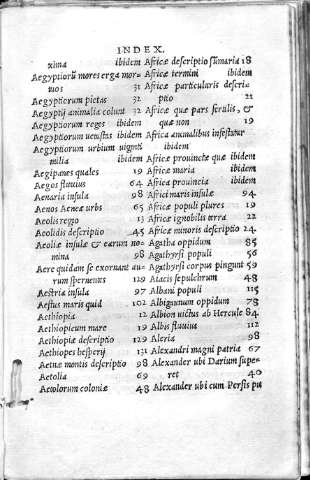 INDEX.
xima ibidem
Aegyptiorũ mores erga mor-
tuos 31
Aegyptiorum pietas 32
Aegyptij animalia colunt 32
Aegyptiorum reges ibidem
Aegyptiorum uenustus ibidem
Aegyptiorum urbium uiginti
milia ibidem
Aegipanes quales 19
Aegos fluuius 64
Aenaria insula 98
Aenos Aeneæ urbs 65
Aeolis regio 13
Aeolidis descriptio 45
Aeoliæ insulæ & earum no-
mina 98
Aere quidam se exornant au-
rum spernentes 129
Aestria insula 97
Aestus maris quid 102
Aethiopia 12
Aethiopicum mare 19
Aethiopiæ descriptio 129
Aethiopes hesperij 131
Aetnæ montis descriptio 98
Aetolia 69
Aetolorum coloniæ 48
Africæ descriptio sũmaria 18
Africæ termini ibidem
Africæ particularis descri-
ptio 21
Africæ quæ pars ferilis, &
quæ non 19
Africa animalibus infestatur
ibidem
Africæ prouinciæ quæ ibidem
Africæ maria ibidem
Africæ prouincia ibidem
Africi maris insulæ 94
Africæ populi plures 19
Africæ ignobilis terra 22
Africæ minoris descriptio 24
Agatha oppidum 85
Agathyrsi populi 56
Agathyrsi corpus pingunt 59
Aiacis sepulchrum 48
Albani populi 115
Albignanum oppidum 78
Albion uictus ab Hercule 84
Albis fluuius 112
Aleria 98
Alexandri magni patria 67
Alexander ubi Darium supe-
ret 40
Alexander ubi cum Persis pu